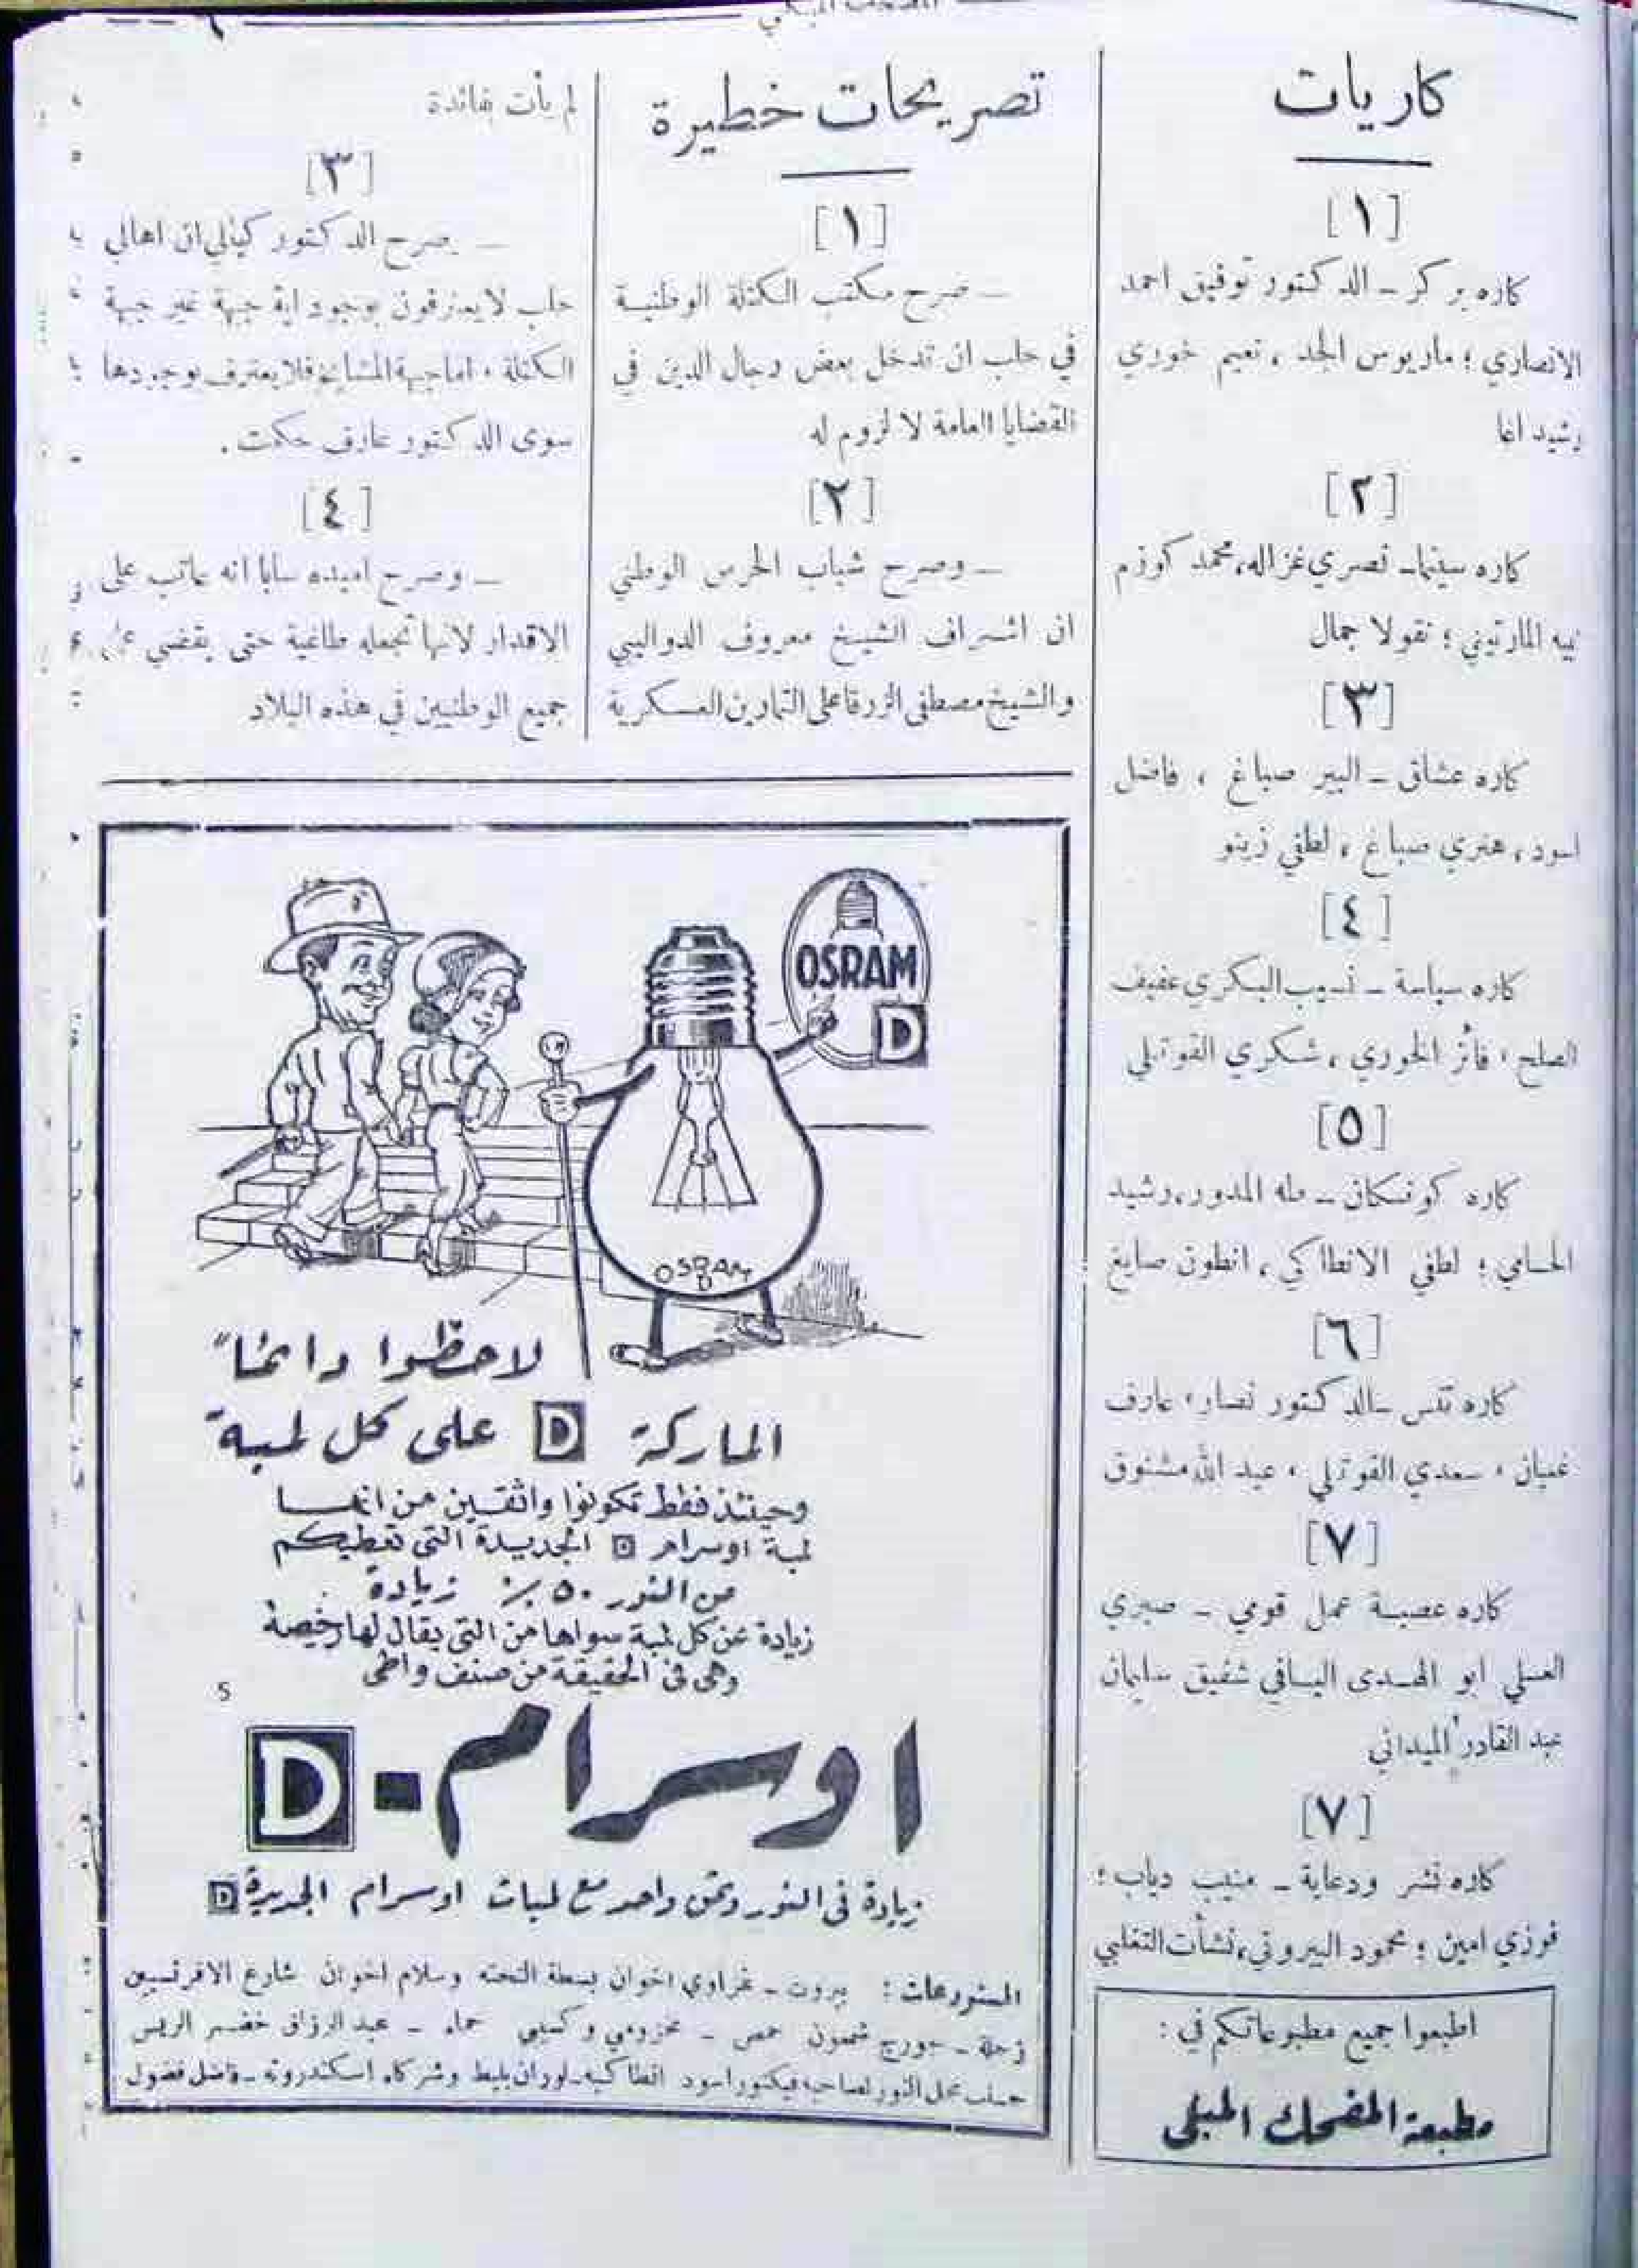 المضحك المبكي
كاريات
[١]
كاره بركر ـ الدكتور توفيق احمد
الانصاري ؛ ماريوس الجد ، نعيم خوري
رشيد اغا
[٢]
كاره سينما ـ نصري غزاله، محمد كوزم
نبيه المارتيني ؛ نقولا جمال
[٣]
كاره عشاق ـ البير صباغ ، فاضل
اسود ، هنري صباغ ، لطفي زينو
[٤]
كاره سياسة ـ نسيب البكري عفيف
الصلح ، فائز الخوري ، شكري القوتلي
[٥]
كاره كونكان ـ طه المدور، رشيد
الحسامي ؛ لطفي الانطاكي ، انطون صايغ
[٦]
كاره تنس ـ الدكتور نصار ، عارف
غميان ، سعدي القوتلي ، عبد الله مشنوق
[٧]
كاره عصبة عمل قومي ـ صبري
العسلي ابو الهدى اليافي شفيق سليمان
عبد القادر الميداني
[٧]
كاره نشر ودعاية ـ منيب دياب ؛
فوزي امين ؛ محمود البيروتي، نشأت التغلبي
اطبعوا جميع مطبوعاتكم في :
مطبعة المضحك المبكي
تصريحات خطيرة
[١]
ـ صرح مكتب الكتلة الوطنية
في حلب ان تدخل بعض رجال الدين في
القضايا العامة لا لزوم له
[٢]
ـ وصرح شباب الحرس الوطني
ان اشراف الشيخ معروف الدواليبي
والشيخ مصطفى الزرقا على التمارين العسكرية
لم يأت بفائدة
[٣]
ـ يصرح الدكتور كيالي ان اهالي
حلب لا يعترفون بوجود اية جبهة غير جبهة
الكتلة ، اما جبهة المشايخ فلا يعترف بوجودها
سوى الدكتور عارف حكمت .
[٤]
ـ وصرح اميده سابا انه عاتب على
الاقدار لانها تجعله طاغية حتى يقضي على
جميع الوطنيين في هذه البلاد
OSRAM
D
OSRAM
D
لاحظوا دائمًا"
الماركة D على كل لمبة
وحينئذ فقط تكونوا واثقين من انها
لمبة اوسرام D الجديدة التى تعطيكم
من النور ٥٠ ٪ زيادة
زيادة عن كل لمبة سواها من التى يقال لها رخيصة
وهى فى الحقيقة من صنف واطى
5
اوسرام - D
زيادة فى النور وثمن واحد مع لمبات اوسرام الجديدة D
المستودعات : بيروت ـ غراوي اخوان بسطة التحته وسلام اخوان شارع الافرنسيين
زحلة ـ جورج شمعون حمص ـ مخزومي وكسيبي حماه ـ عبد الرزاق خضر الريس
حلب محل النور لصاحبه فيكتور اسود انطاكيه ـ لوران بليط وشركاه اسكندرونه ـ فاضل فضول